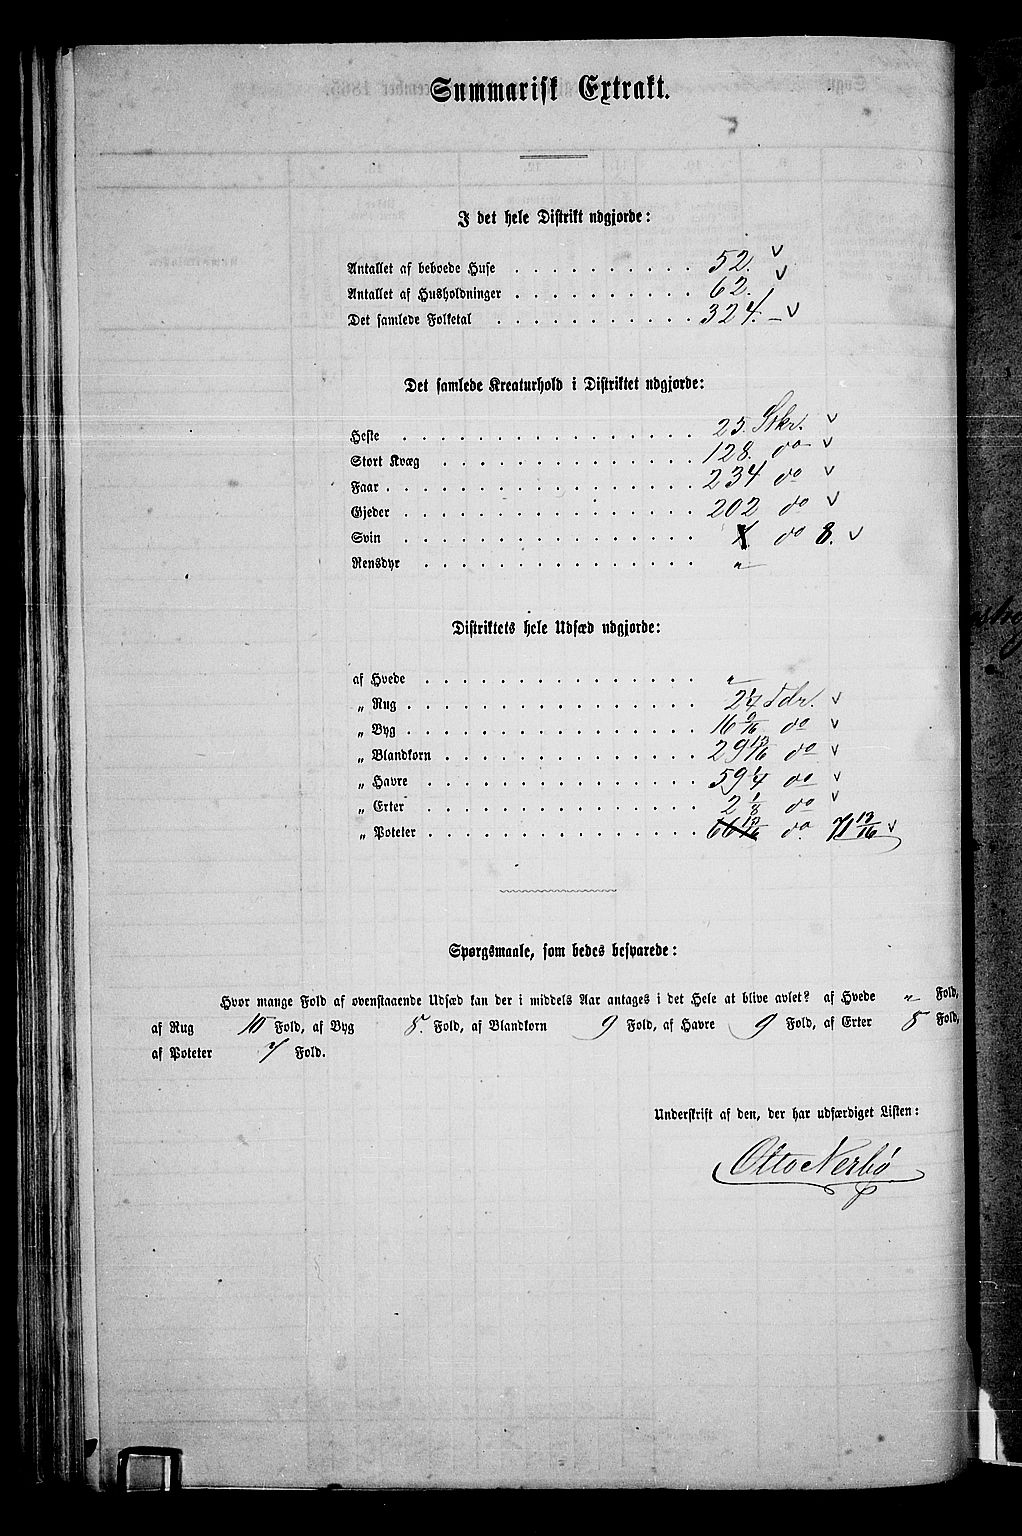 Summarisk Extrakt.
I det hele Distrikt udgjorde:
Antallet af beboede Huse . . . . . . . . . . 52. v
Antallet af Husholdninger . . . . . . . . . . 62. v
Det samlede Folketal . . . . . . . . . . . 324. – v
Det samlede Kreaturhold i Distriktet udgjorde:
Heste . . . . . . . . . . . . . . . . 25. Stkr. v
Stort Kvæg . . . . . . . . . . . . . . 128. do v
Faar . . . . . . . . . . . . . . . . . 234 do v
Gjeder . . . . . . . . . . . . . . . . 202 do v
Svin . . . . . . . . . . . . . . . . do 8. v
Rensdyr . . . . . . . . . . . . . . . "
Distriktets hele Udsæd udgjorde:
af Hvede . . . . . . . . . . . . . . . "
„ Rug . . . . . . . . . . . . . . . . 2 1/4 Tdr. v
„ Byg . . . . . . . . . . . . . . . . 16 9/16 do v
„ Blandkorn . . . . . . . . . . . . . . 29 13/16 do v
„ Havre . . . . . . . . . . . . . . . 59 1/4 do v
„ Erter . . . . . . . . . . . . . . . 2 1/8 do v
„ Poteter . . . . . . . . . . . . . . . 66 13/16 do 71 13/16 v
Spørgsmaale, som bedes besvarede:
Hvor mange Fold af ovenstaaende Udsæd kan der i middels Aar antages i det Hele at blive avlet? af Hvede " Fold,
af Rug 10 Fold, af Byg 8. Fold, af Blandkorn 9 Fold, af Havre 9 Fold, af Erter 8 Fold,
af Poteter 7 Fold.
Underskrift af den, der har udfærdiget Listen:
Otto Nerbø